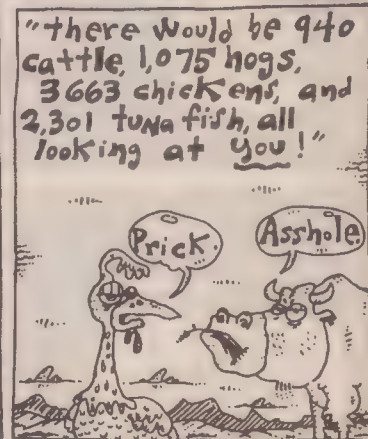 "there would be 940
cattle, 1,075 hogs,
3663 chickens, and
2,301 tuna fish, all
looking at you!"
Prick.
Asshole.